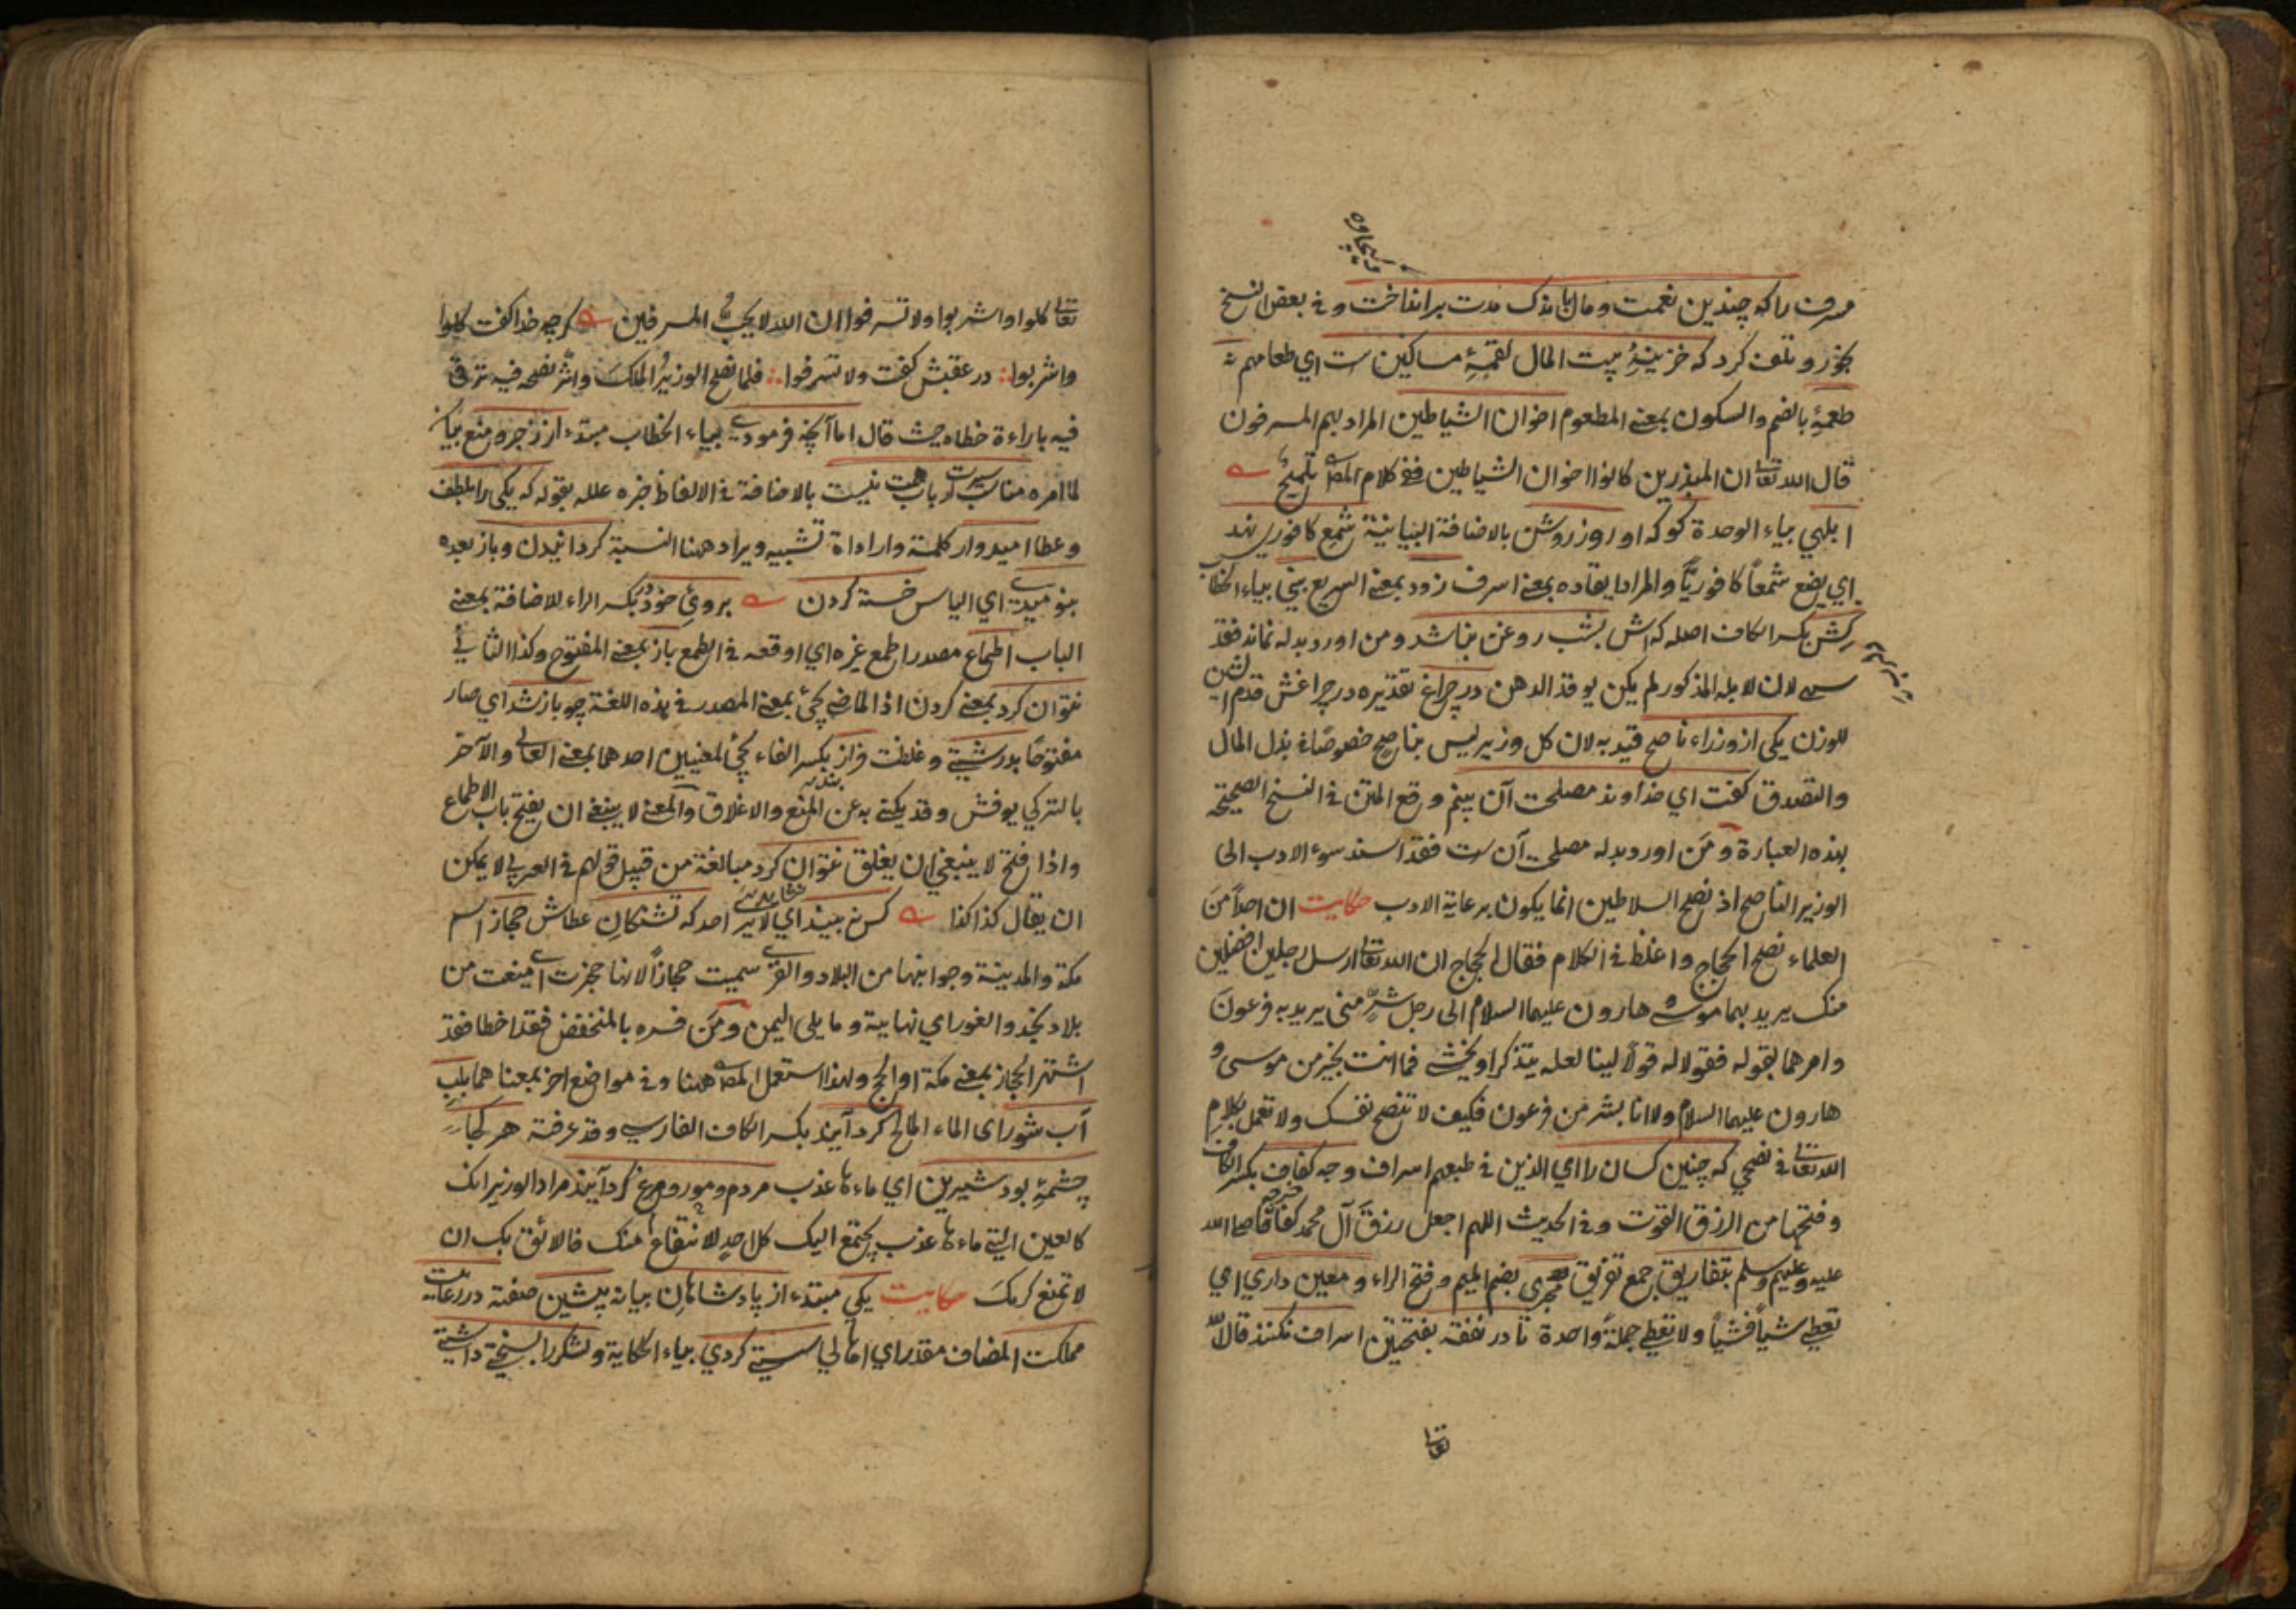 مسرف را که چندین نعمت و مال باندک مدت برانداخت و في بعض النسخ
بخورد و تلف کرد که خزینهٔ بیت المال لقمهٔ مساکین ست اي طعامهم نه
طعمهٔ بالضم والسکون بمعنے المطعوم اخوان الشیاطین المراد بهم المسرفون
قال الله تعالى ان المبذرین کانوا اخوان الشیاطین ففي کلام المص تلمیح
ابلهي بیاء الوحدة کو که او روز روشن بالاضافة البیانیة شمع کافوري نهد
اي یضع شمعاً کافوریّاً والمراد ایقاده بمعنے اسرف زود بمعنے السریع بیني بیاء الخطاب
کش بکسر الکاف اصله که اش بشب روغن نباشد ومن اورد بدله نماند فقد
سهى لان لابله المذکور لم یکن یوقد الدهن در چراغ تقدیره در چراغش قدم الشین
للوزن یکی از وزراء ناصح قید به لان کل وزیر لیس بناصح خصوصًا في بذل المال
والتصدق گفت اي خداوند مصلحت آن بینم وقع المتن في النسخ الصحیحة
بهذه العبارة ومن اورد بدله مصلحت آن ست فقد اسند سوء الادب الی
الوزیر الناصح اذ نصح السلاطین انما یکون برعایة الادب حکایت ان احداً من
العلماء نصح الحجاج واغلظ في الکلام فقال الحجاج ان الله تعالى ارسل رجلین افضلین
منک یرید بهما موسى و هارون علیهما السلام الی رجل شرٍّ مني یرید به فرعون
وامرهما بقوله فقولا له قولاً لینا لعله یتذکر او یخشى فما انت بخیر من موسى و
هارون علیهما السلام ولا انا بشر من فرعون فکیف لا تنصح نفسک ولا تعمل بکلام
الله تعالى في نصحي که چنین کسان را اي الذین في طبعهم اسراف وجه کفاف بکسر الکاف
وفتحها من الرزق القوت وفي الحدیث اللهم اجعل رزق آل محمد کفافا صلى الله
علیه وعلیهم وسلم بتفاریق جمع تفریق مجرى بضم المیم وفتح الراء ومعین داري اي
تعطي شیأً فشیأً ولا تعطي جملةً واحدة تا در نفقه بفتحتین اسراف نکنند قال الله
تعالى
تعالى کلوا واشربوا ولا تسرفوا ان الله لا یحب المسرفین گرچه خدا گفت کلوا
واشربوا در عقبش گفت ولا تسرفوا فلما نصح الوزیر الملک واثر نصحه فیه ترقى
فیه باراءة خطاه حیث قال اما آنچه فرمودي بیاء الخطاب مبتدء از زجر و منع بیان
لما امره مناسب سیرت ارباب همت نیست بالاضافة في الالفاظ خبره علله بقوله که یکی را بلطف
وعطا امیدوار کلمة وار اداة تشبیه ویراد ههنا النسبة گردانیدن وباز بعده
بنومیدي اي الیاس خسته کردن بروئ خود بکسر الراء للاضافة بمعنے
الباب اطماع مصدر اطمع غیره اي اوقعه في الطمع باز بمعنے المفتوح وکذا الثاني
نتوان کرد بمعنے کردن اذ الماضي یجيء بمعنے المصدر في هذه اللغة چو باز شد اي صار
مفتوحًا بدرشتي وغلظت فراز بکسر الفاء یجيء لمعنیین احدهما بمعنے العالي والآخر
بالترکي یوقش وقد یکنے به عن المنع والاغلاق والمعنے لا ینبغي ان یفتح باب الاطماع
واذا فتح لا ینبغي ان یغلق نتوان کرد مبالغة من قبیل قولهم في العربي لا یمکن
ان یقال کذا کذا کس نبیند اي لا یرى احد که تشنگان عطاش حجاز اسم
مکة والمدینة وجوانبها من البلاد والقرى سمیت حجازاً لانها حجزت اي منعت من
بلاد نجد والغور اي تهامة وما یلي الیمن ومن فسره بالمنخفض فقد اخطا فقد
اشتهر الحجاز بمعنے مکة او الحج ولهذا استعمل المص ههنا وفي مواضع اخر بمعنا هما بلب
آب شور اى الماء المالح گرد آیند بکسر الکاف الفارسي وقد عرفته هر کجا
چشمهٔ بود شیرین اي ماءها عذب مردم ومور ومرغ گرد آیند مراد الوزیر انک
کالعین التي ماءها عذب یجتمع الیک کل احد لانتفاع منک فاللائق بک ان
لا تمنع کرمک حکایت یکي مبتدء از پادشاهان بیانه پیشین صفته در رعایت
مملکت المضاف مقدر اي اهالي سستي کردي بیاء الحکایة ولشکر را بسختي داشتي